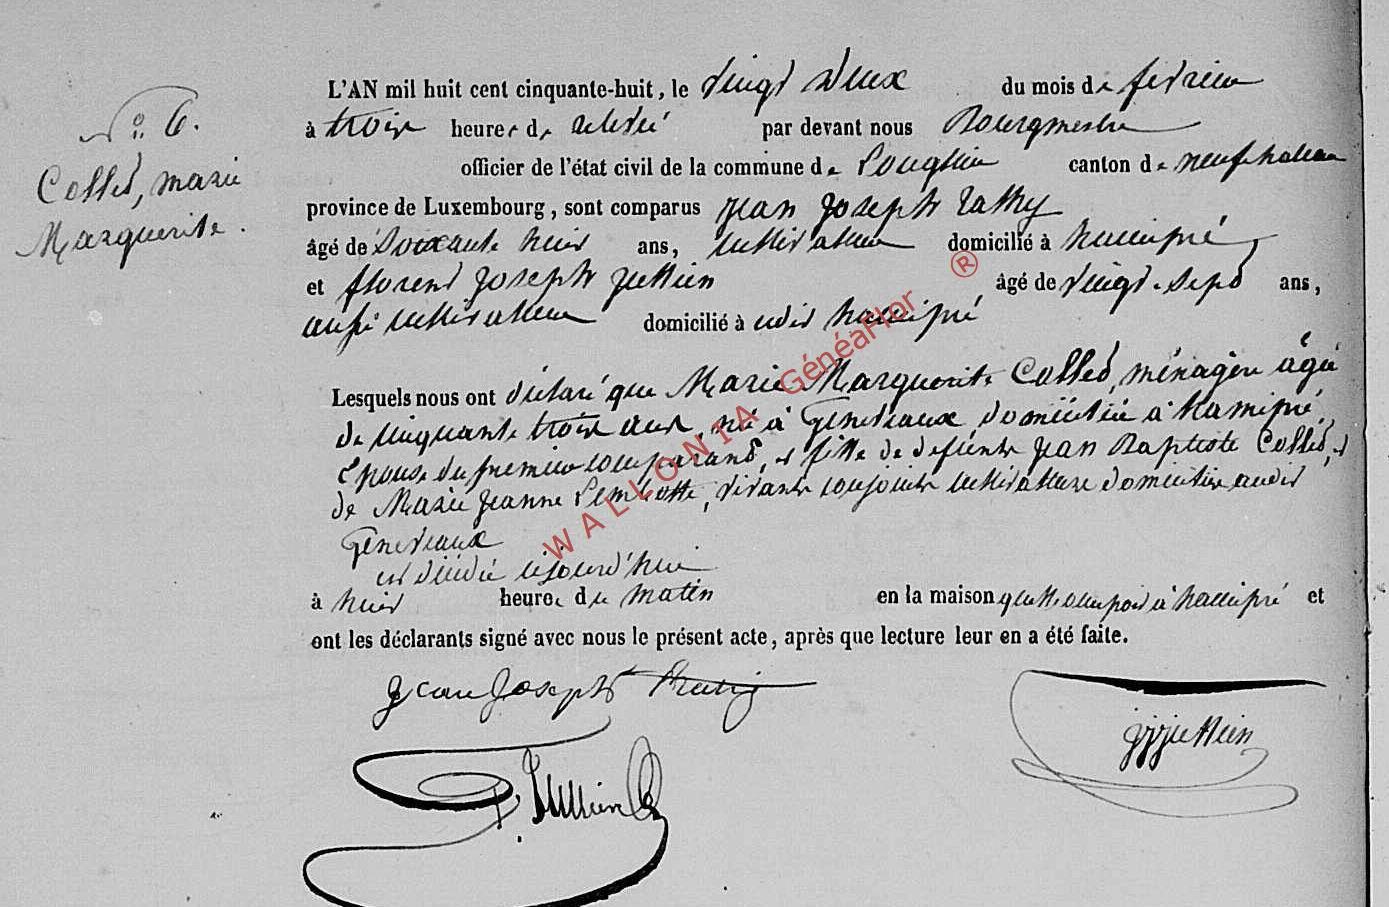 N° 6.
Collet, marie
Marguerite.
L'AN mil huit cent cinquante-huit, le vingt deux du mois de fevrier
à trois heures de relevé par devant nous Bourgmestre
officier de l'état civil de la commune de Longlier canton de neufchateau
province de Luxembourg, sont comparus jean joseph
âgé de soixante huit ans, cultivateur domicilié à hamipré,
et florent joseph jullien âgé de vingt-sept ans,
aussi cultivateur domicilié à udit hamipré
Lesquels nous ont déclaré que Marie Marguerite Collet, ménagère âgée
de cinquante trois ans, né à Gerimont domiciliée à hamipré,
Epouse du premier comparant, et fille de defunts jean Baptiste Collet, et
de Marie jeanne, vivants conjoints cultivateurs domiciliés audit
est décédée aujourd'hui
à huit heures du matin en la maison qu'elle occupoit à hamipré et
ont les déclarants signé avec nous le présent acte, après que lecture leur en a été faite.
jean joseph
jjjullien
Jullien
WALLONIA GénéaFlor ®